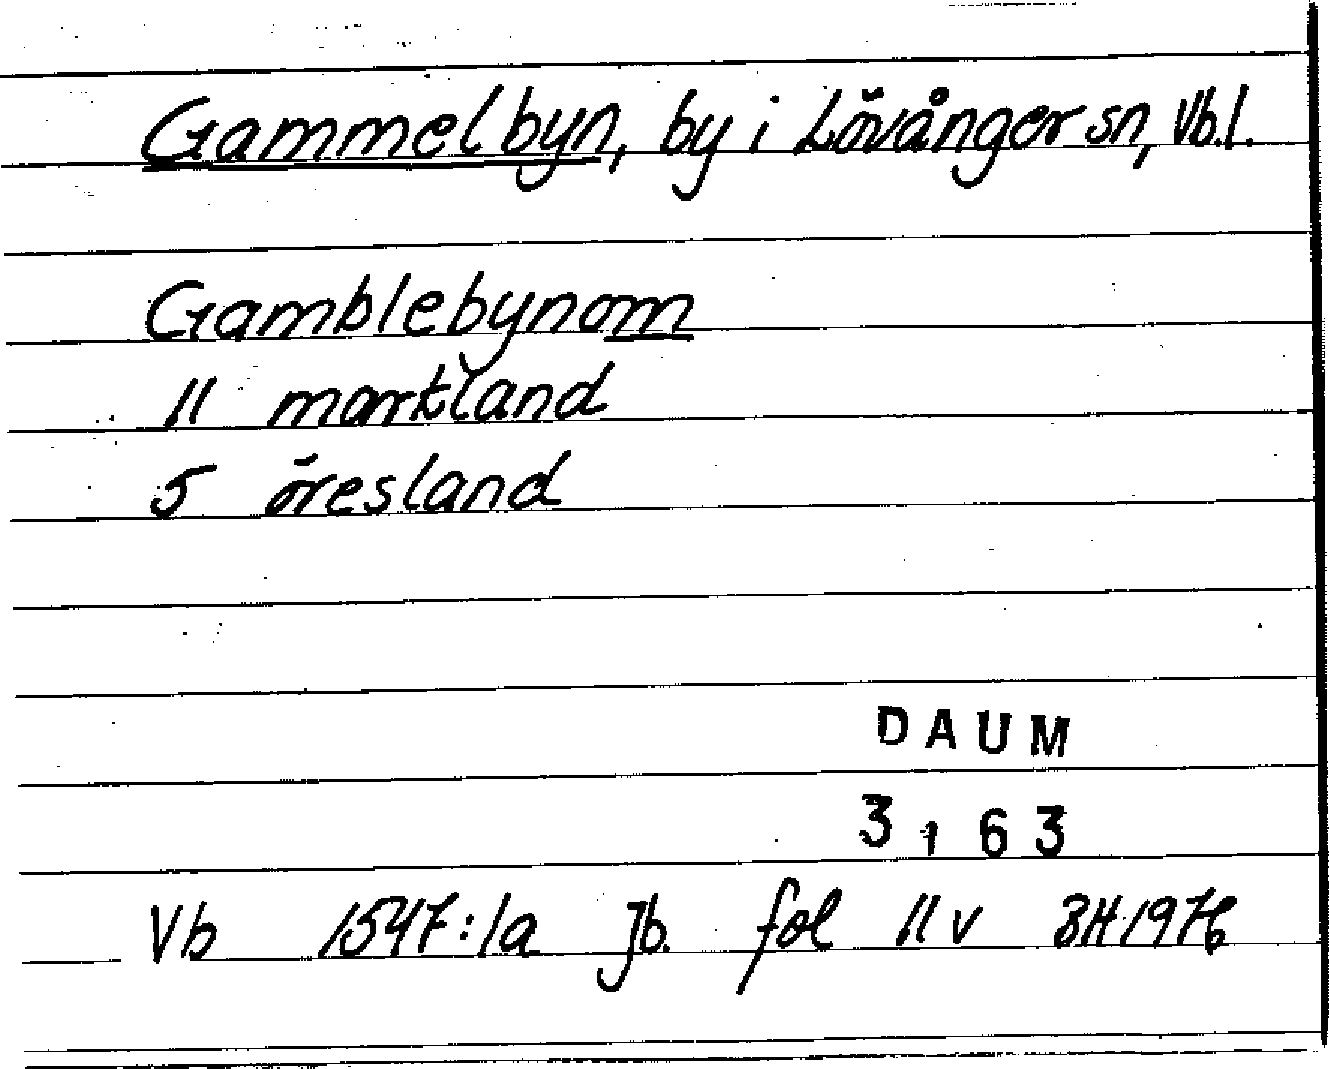 Gammelbyn, by i Lövånger sn, Vb.l.
Gamblebynom
11 markland
5 öresland
DAUM
3163
Vb 1547:1a Jb. fol 11 v BH 1976